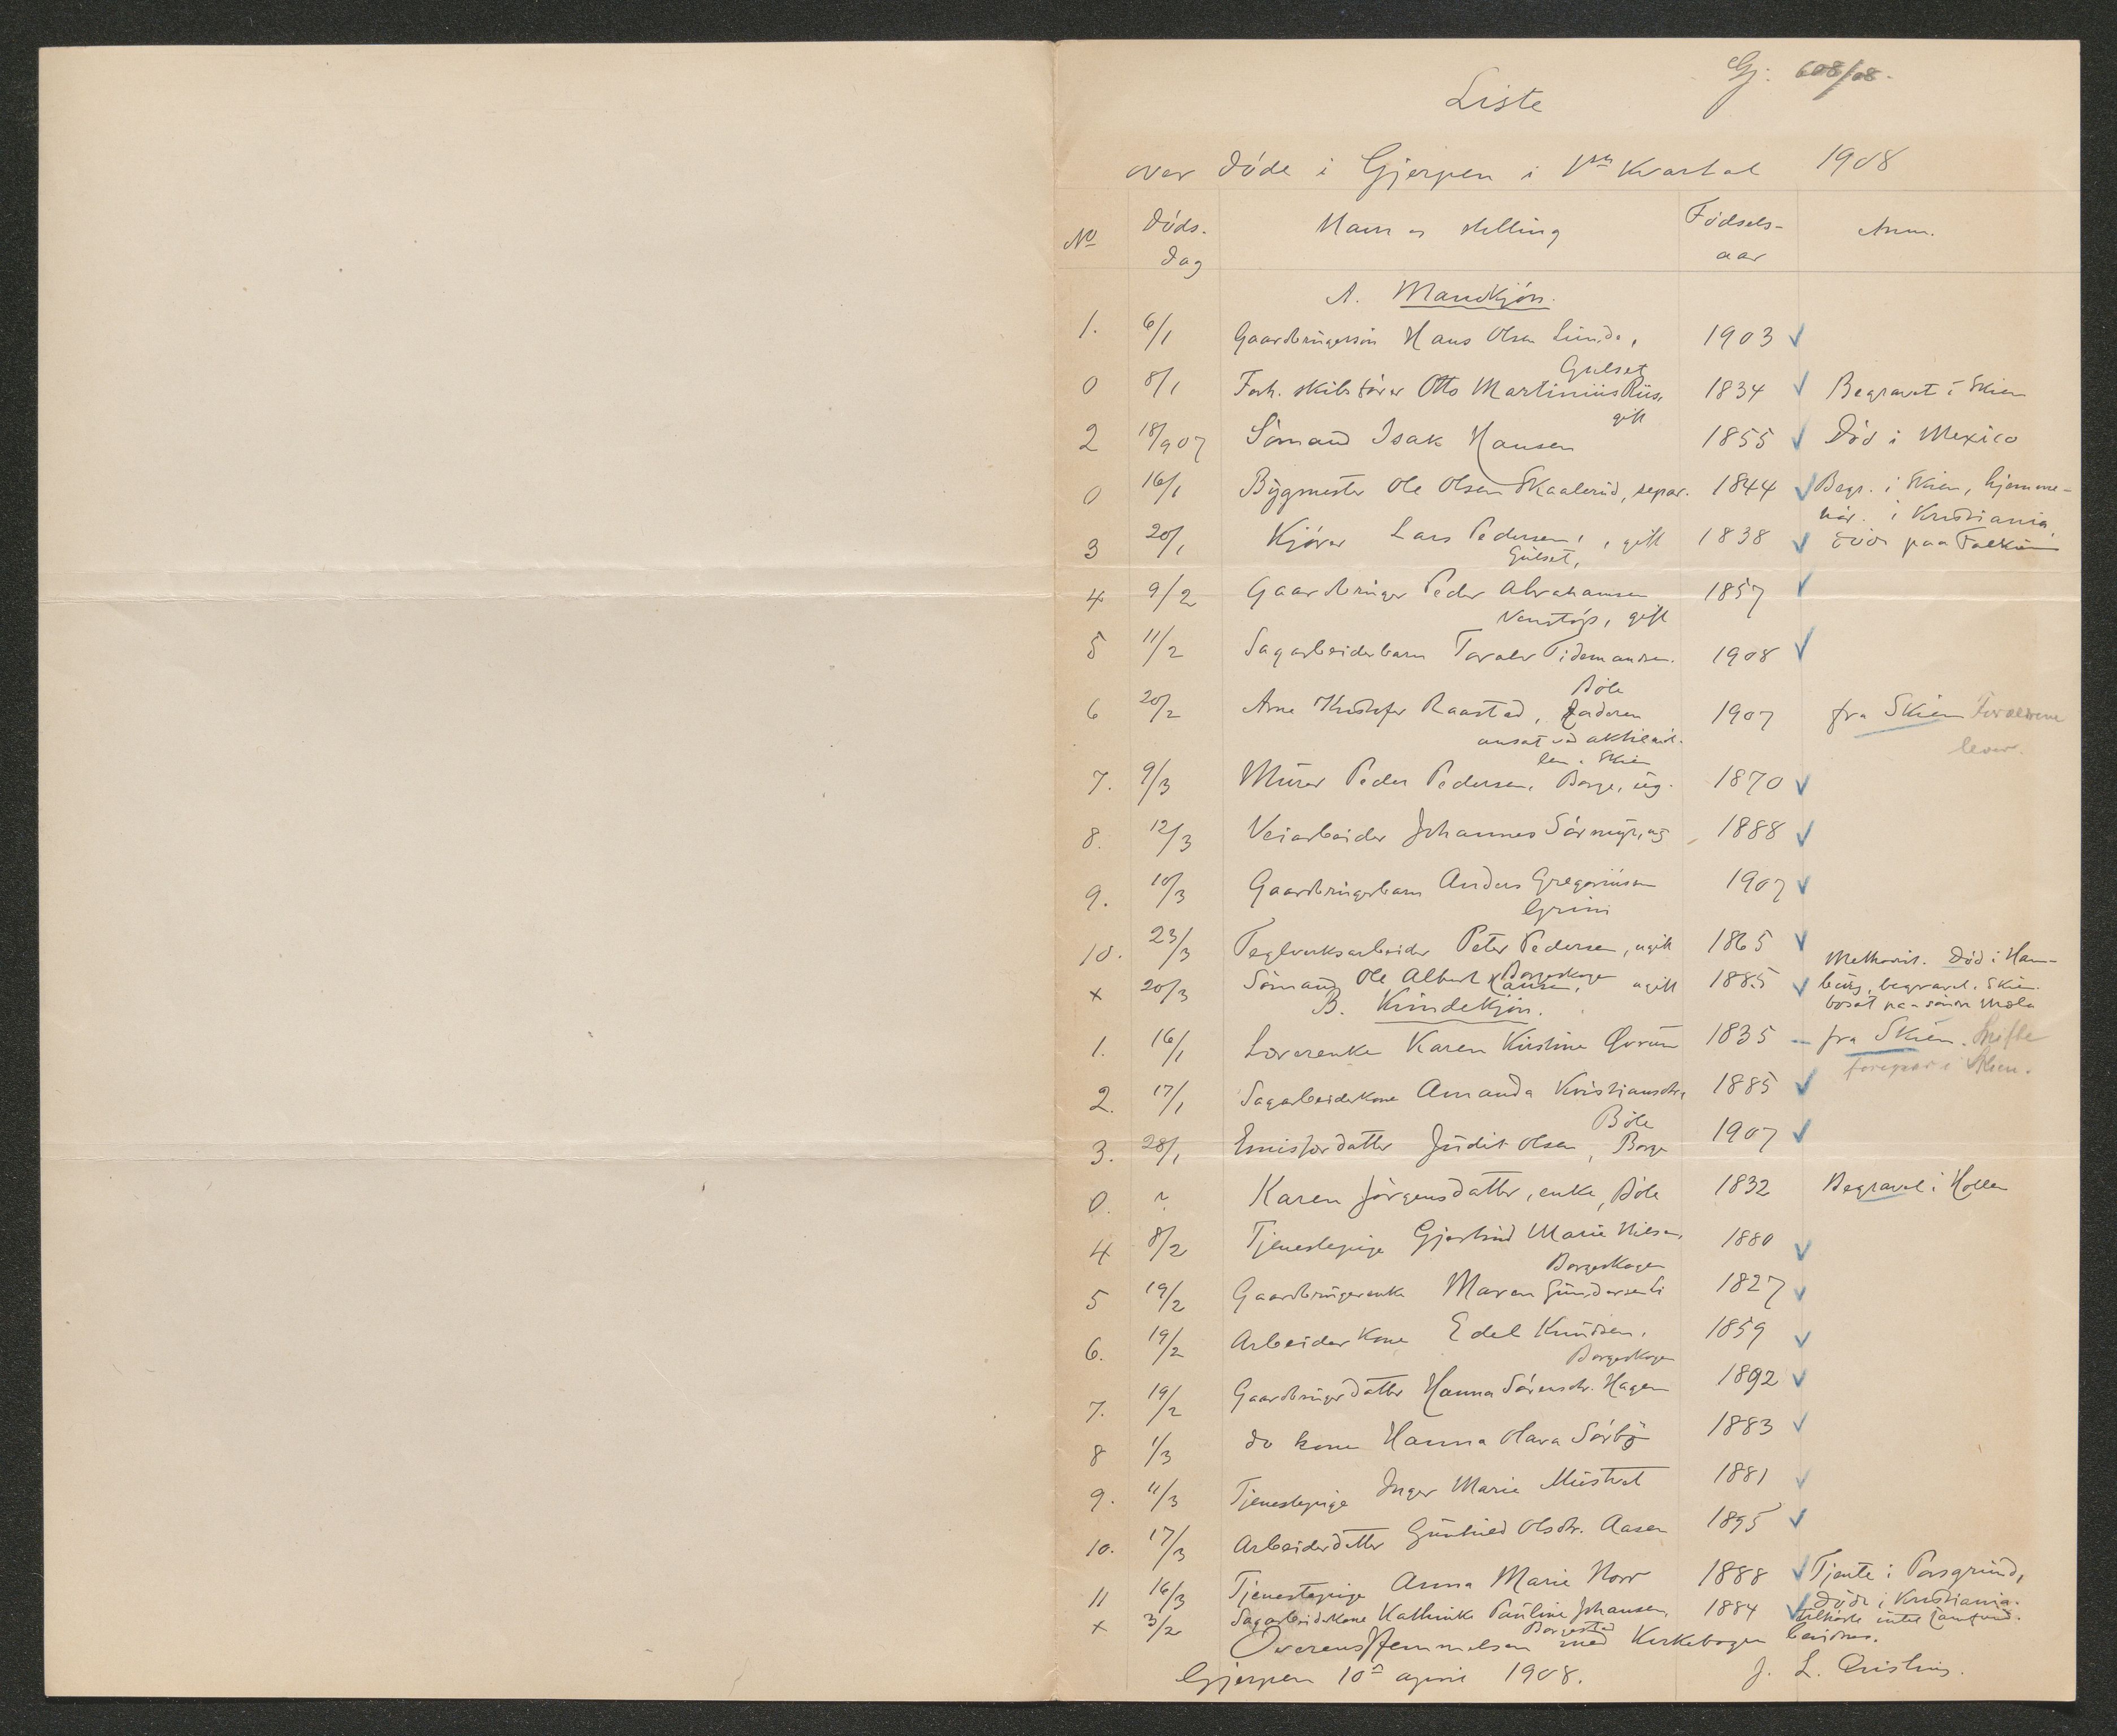 Gj: 608/08.
Liste
over døde i Gjerpen i 1ste Kvartal 1908
No Døds-dag Navn og stilling Fødsels-aar Anm.
A. Mandkjøn.
1. 6/1 Gaardbrugersøn Hans Olsen Lunde, 1903
Gulset
0 8/1 Forh. skibsfører Otto Martinius Riis, 1834 Begravet i Skien
gift
2 18/9 07 Sømand Isak Hansen 1855 Død i Mexico
0 16/1 Bygmester Ole Olsen Skaalerud, separ. 1844 Begr. i Skien, hjemme-
hør. i Kristiania
3 20/1 Kjører Lars Pedersen, gift 1838 Død paa Falkum
Gulset,
4 9/2 Gaardbruger Peder Abrahamsen 1857
Venstøp, gift
5 11/2 Sagarbeiderbarn Toralv Tidemandsen. 1908
Bøle
6 20/2 Arne Kristofer Raastad, faderen 1907 fra Skien Foraldrene
ansat ved aktiemøl- lever.
len i Skien
7. 9/3 Murer Peder Pedersen, Borge, ug. 1870
8. 12/3 Veiarbeider Johannes Sørmyr, ug 1888
9. 10/3 Gaardbrugerbarn Anders Gregoriusen 1907
Grini
10. 23/3 Teglverksarbeider Peter Pedersen, ugift 1865
Borgeskogen Methodist. Død i Ham-
x 20/3 Sømand Ole Albert Hansen, ugift 1885 burg, begravet i Skien.
bosat paa søndre Mæla
B. Kvindekjøn.
1. 16/1 Loverenke Karen Kirstine Qvrum 1835 fra Skien. Skifte
foregaar i Skien.
2. 17/1 Sagarbeiderkone Amanda Kristiansdtr, 1885
Bøle
3. 28/1 Emissærdatter Judit Olsen, Borge 1907
0. ? Karen Jørgensdatter, enke, Bøle 1832 Begravet i Hollen
4 8/2 Tjenestepige Gjertrud Marie Nilsen, 1880
Borgeskogen
5 19/2 Gaardbrugerenke Maren Gundersen Li 1827
6. 19/2 Arbeiderkone Edel Knudsen, 1859
Borgeskogen
7. 19/2 Gaardbrugerdatter Hanna Sørensdtr. Hagen 1892
8 1/3 do kone Hanna Olava Sørbø 1883
9. 11/3 Tjenestepige Inger Marie Mustvet 1881
10. 17/3 Arbeiderdatter Gunhild Olsdtr. Aasen 1895
11 16/3 Tjenestepige Anna Marie Norr 1888 Tjente i Porsgrund,
døde i Kristiania.
x 3/2 Sagarbeiderkone Kathinka Pauline Johansen, 1884 tilhørte intet samfund.
Borgestad
Overensstemmelsen med Kirkebogen bevidnes.
Gjerpen 10de april 1908. J. L. Qvisling.